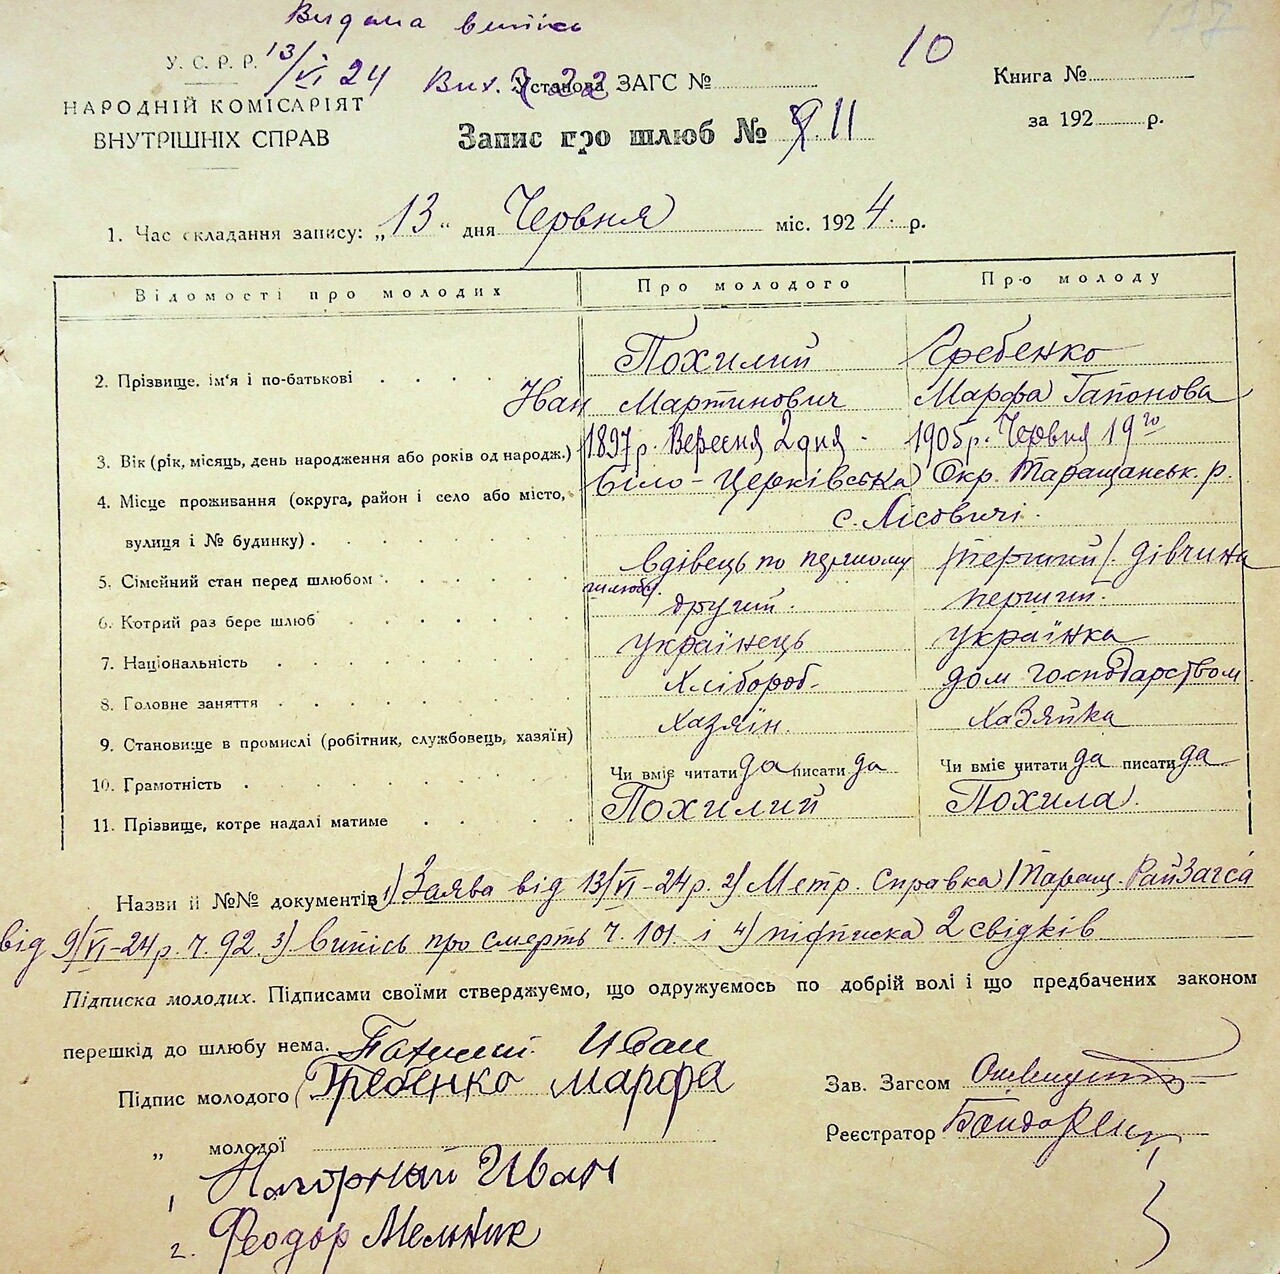 Видана випись
13/VI 24 Вих. 22
10
177
У. С. Р. Р.
НАРОДНІЙ КОМІСАРІЯТ
ВНУТРІШНІХ СПРАВ
Установа ЗАГС №
Книга №
за 192 р.
Запис про шлюб № 11
1. Час складання запису: „13“ дня Червня міс. 1924 р.
Відомості про молодих Про молодого Про молоду
2. Прізвище, ім'я і по-батькові Похилий Гребенко
Иван Мартинович Марфа Гапонова
3. Вік (рік, місяць, день народження або років од народж.) 1897 р. Вересня 2 дня - 1905 р. Червня 19го
4. Місце проживання (округа, район і село або місто, Біло-Церківська Окр. Таращанськ. р.
вулиця і № будинку) с. Лісовичі.
5. Сімейний стан перед шлюбом вдівець по першому шлюбу. /першій/. дівчина
6. Котрий раз бере шлюб другий. перший.
7. Національність українець українка
8. Головне заняття хлібороб. дом господарством
9. Становище в промислі (робітник, службовець, хазяїн) хазяїн. хазяйка
10. Грамотність Чи вміє читати да писати да Чи вміє читати да писати да
11. Прізвище, котре надалі матиме Похилий Похила.
Назви іі №№ документів 1) Заява від 13/VI-24 р. 2) Метр. справка /Таращ. РайЗагса
від 9/VI-24 р. ч. 92. 3) випись про смерть ч. 101. і 4) підписка 2 свідків
Підписка молодих. Підписами своїми стверджуємо, що одружуємось по добрій волі і що предбачених законом
перешкід до шлюбу нема. Пахилий Иван
Підпис молодого Гребенко Марфа
Зав. Загсом
„ молодої
Реєстратор
1, Нагорний Иван
2. Феодор Мельник